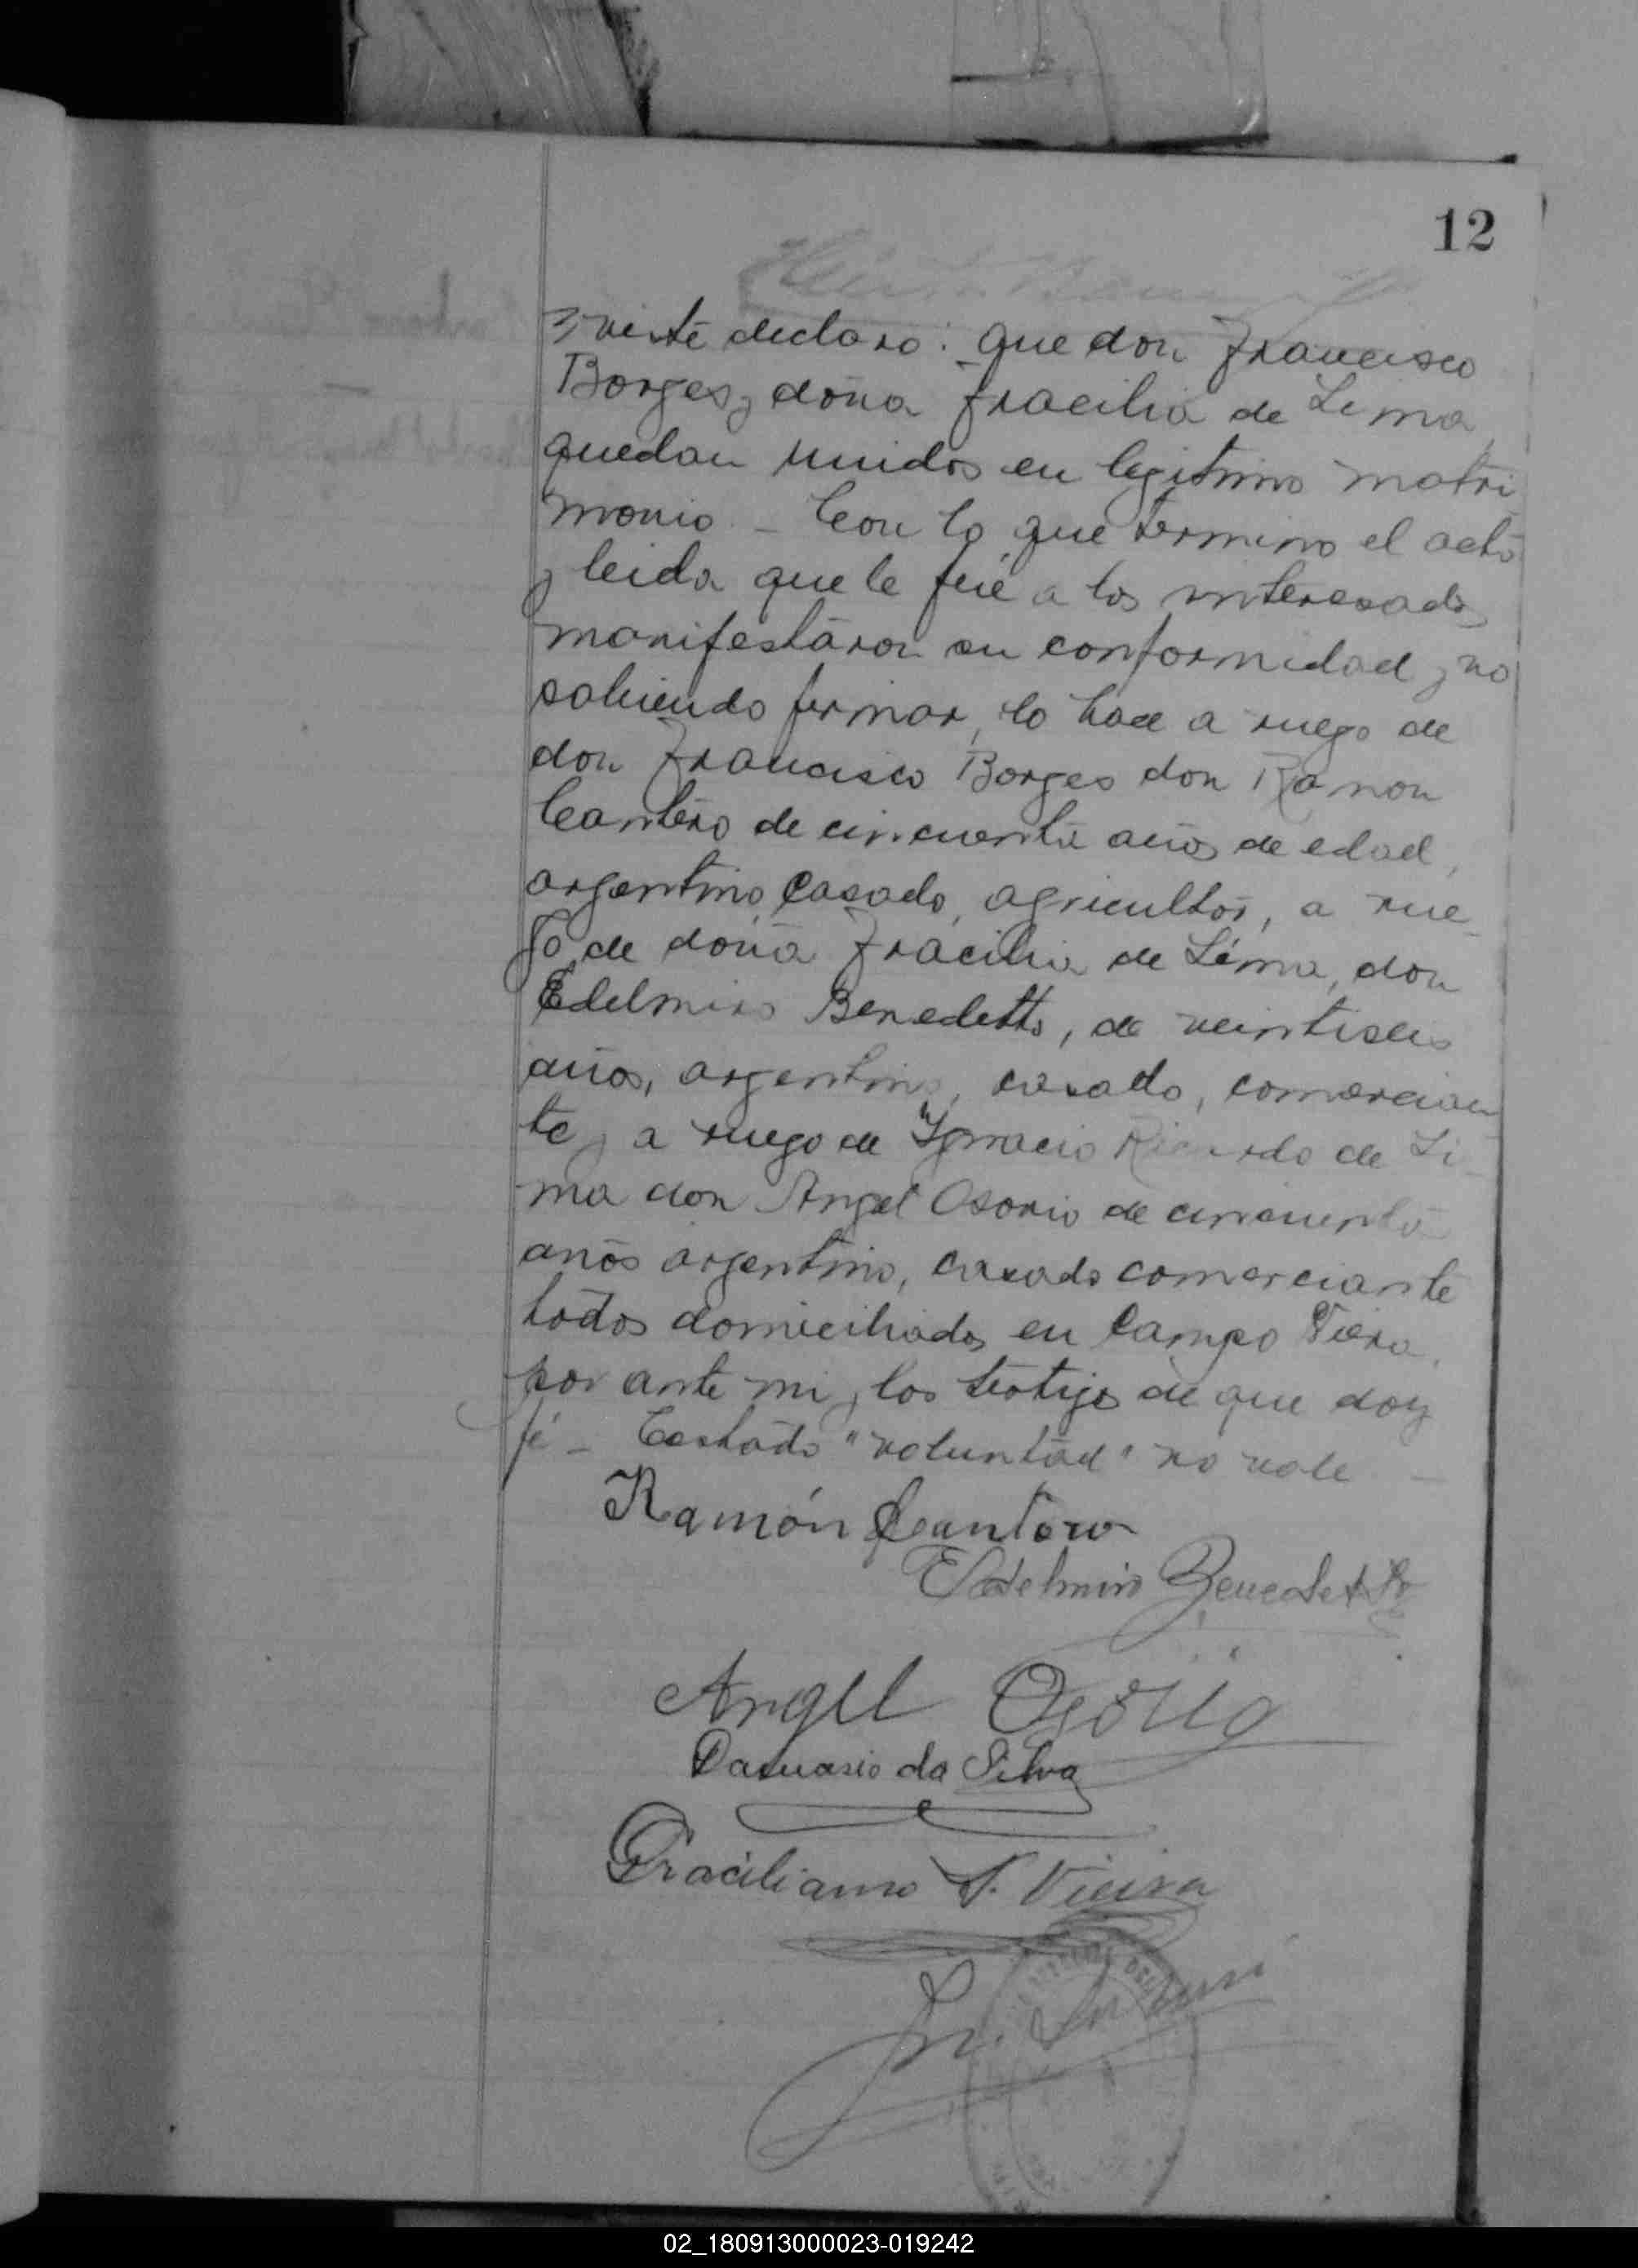 12
viste declaro: que don Francisco
Borges y doña Fracilia de Lima,
quedan unidos en legitimo matri
monio - Con lo que termino el acto
y leida que le fué a los interesados
manifestaron su conformidad y no
sabiendo firmar, lo hace a ruego de
don Francisco Borges don Ramon
Cantero de cincuenta años de edad,
argentino, casado, agricultor, a rue
go de doña Fracilia de Lima, don
Edelmiro Benedetto, de veintiseis
años, argentino, casado, comercian
te y a ruego de Ygnacio Ricardo de Li
ma don Angel Osorio de cincuenta
años argentino, casado comerciante
todos domiciliados en Campo Viera,
por ante mi y los testigos de que doy
fé - Testado "voluntad" no vale -
Ramón Cantero
Edelmiro Benedetto
Angel Osorio
Damasio da Silva
Graciliano S. Vieira
02_180913000023-019242